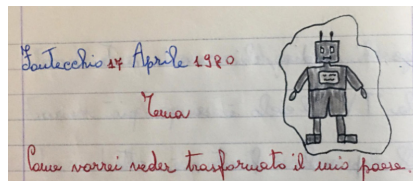 Fontecchio 17 Aprile 1980
Tema
Come vorrei veder trasformato il mio paese.